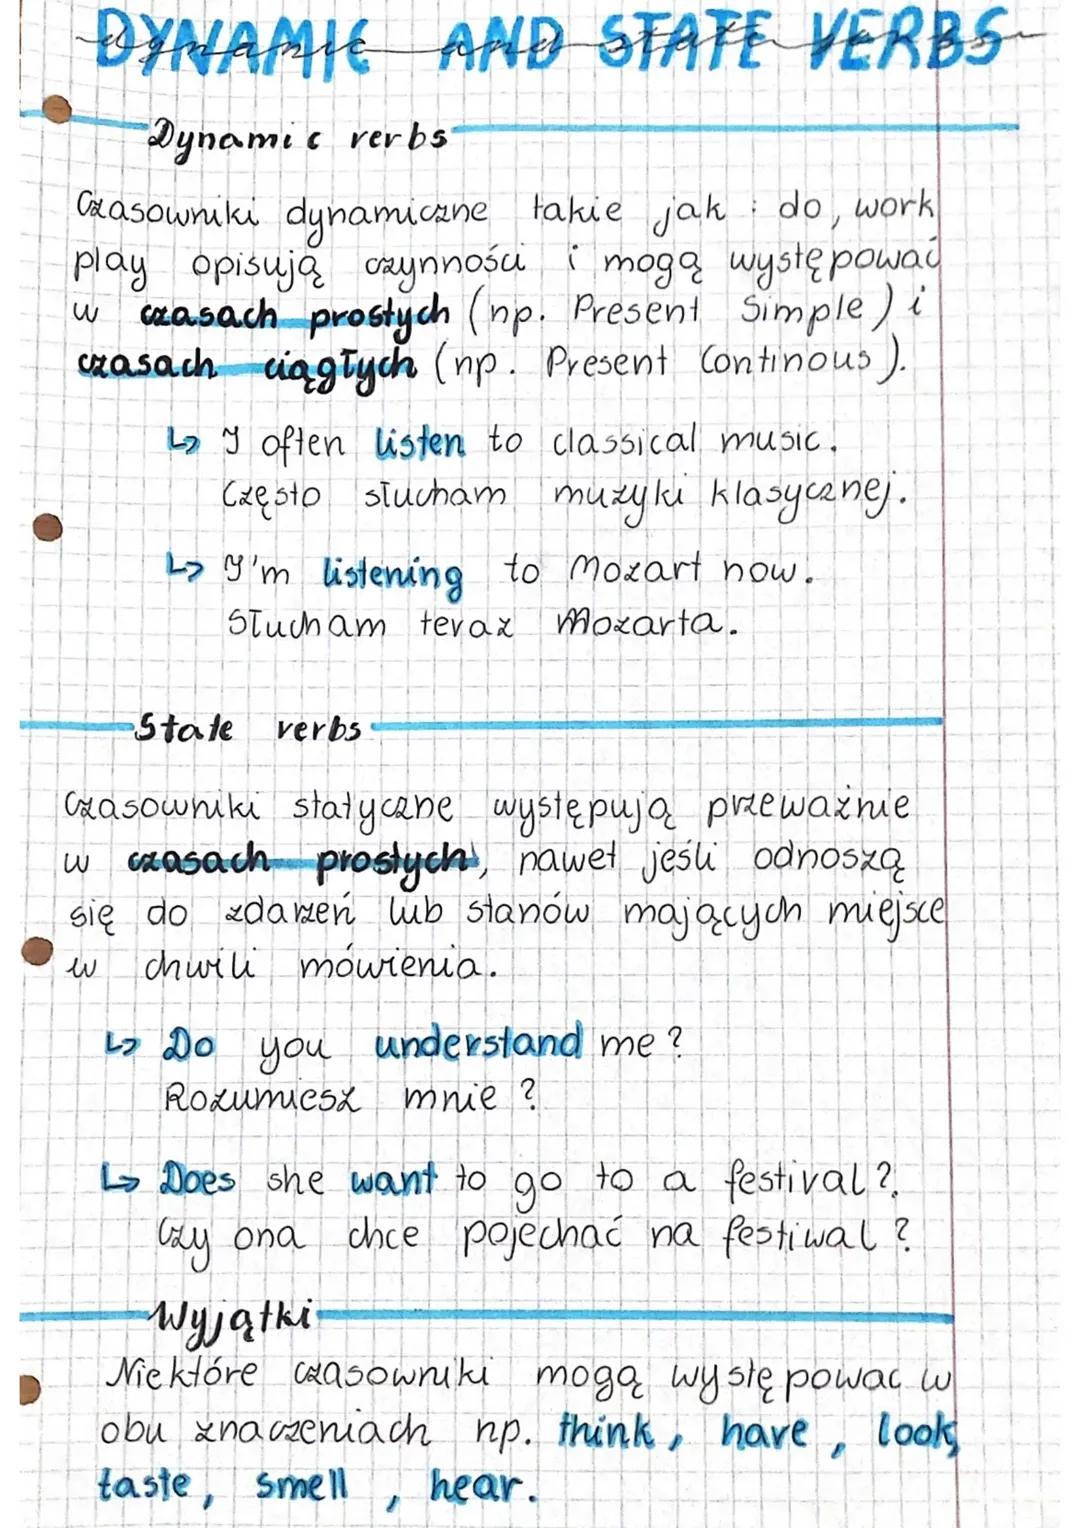 DYNAMIC AND STATE VERBS
dynamic and state verbs
Dynamic verbs
Czasowniki dynamiczne takie jak : do, work
play opisują czynności i mogą występować
w czasach prostych (np. Present Simple) i
czasach ciągłych (np. Present Continous).
↳ I often listen to classical music.
Często słucham muzyki klasycznej.
↳ I'm listening to Mozart now.
Słucham teraz Mozarta.
State verbs
Czasowniki statyczne występują przeważnie
w czasach prostych, nawet jeśli odnoszą
się do zdarzeń lub stanów mających miejsce
w chwili mówienia.
↳ Do you understand me?
Rozumiesz mnie?
↳ Does she want to go to a festival?
Czy ona chce pojechać na festiwal?
Wyjątki
Niektóre czasowniki mogą występować w
obu znaczeniach np. think, have, look,
taste, smell, hear.